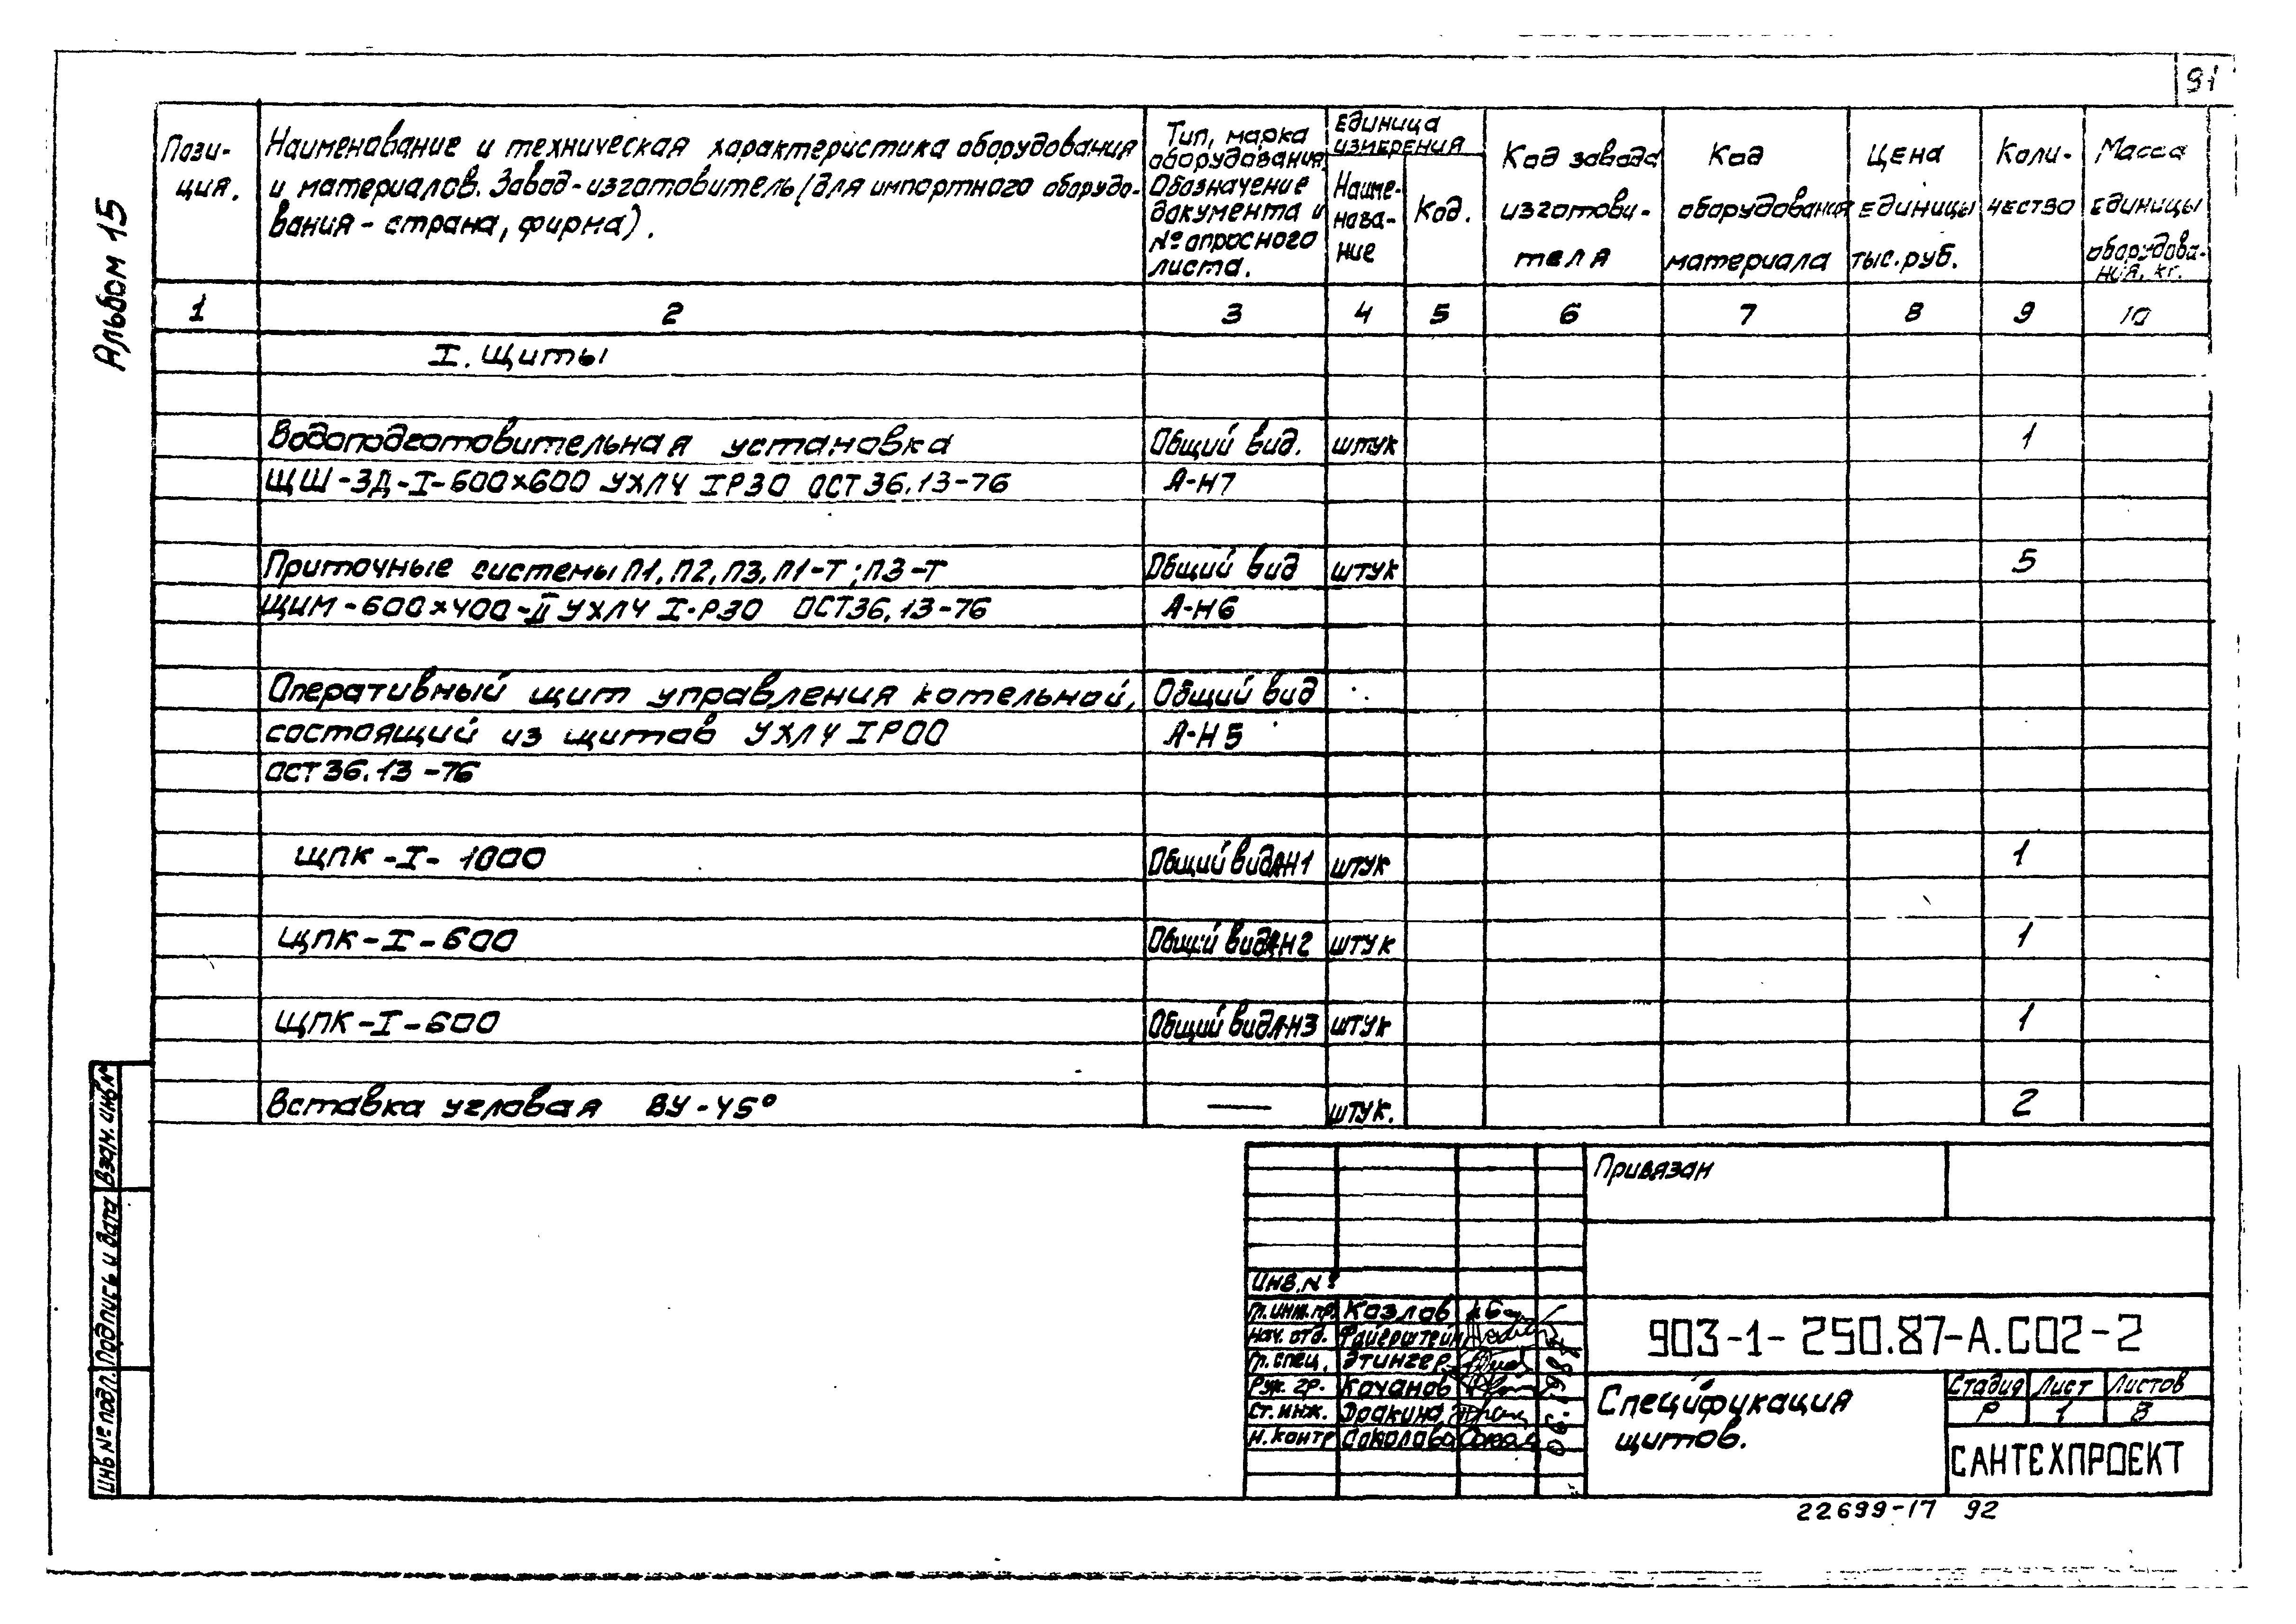 91
Альбом 15
Пози-
ция.
Наименование и техническая характеристика оборудования
и материалов. Завод-изготовитель (для импортного оборудо-
вания - страна, фирма).
Тип, марка
оборудования.
Обозначение
документа и
№ опросного
листа.
Единица
измерения
Наиме-
нова-
ние
Код.
Код завода
изготови-
теля
Код
оборудования
материала
Цена
единицы
тыс. руб.
Коли-
чество
Масса
единицы
оборудова-
ния, кг.
1 2 3 4 5 6 7 8 9 10
I. Щиты
Водоподготовительная установка Общий вид. штук 1
ЩШ-ЗД-I-600х600 УХЛ4 IP30 ОСТ 36.13-76 А-Н7
Приточные системы П1, П2, П3, П1-Т; П3-Т Общий вид штук 5
ЩШМ-600х400-II УХЛ4 I-P30 ОСТ36.13-76 А-Н6
Оперативный щит управления котельной, Общий вид
состоящий из щитов УХЛ4 IP00 А-Н5
ОСТ 36.13-76
ЩПК-I-1000 Общий вид АН1 штук 1
ЩПК-I-600 Общий вид АН2 штук 1
ЩПК-I-600 Общий вид А-Н3 штук 1
Вставка угловая ВУ-45° — штук. 2
Взам. инв.№
Подпись и дата
Инв № подл.
Привязан
Инв.№
Гл. инж. пр. Козлов
Нач. отд. Файерштейн
Гл. спец. Этингер
Рук. гр. Кочанов
Ст. инж. Дракина
Н. контр Соколова
06.1987
903-1-250.87-А.СО2-2
Спецификация
щитов.
Стадия Лист Листов
Р 1 3
САНТЕХПРОЕКТ
22699-17 92